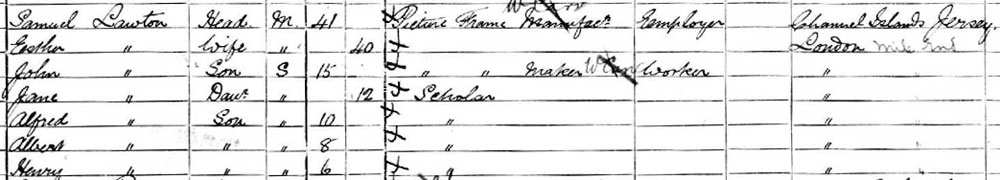 Samuel Lawton Head M 41 Picture Frame Manufactr Employer Channel Islands Jersey.
Esther " Wife " 40 London Mile End
John " Son S 15 " " Maker Worker "
Jane " Daur " 12 Scholar "
Alfred " Son " 10 " "
Albert " " " 8 " "
Henry " " " 6 " "